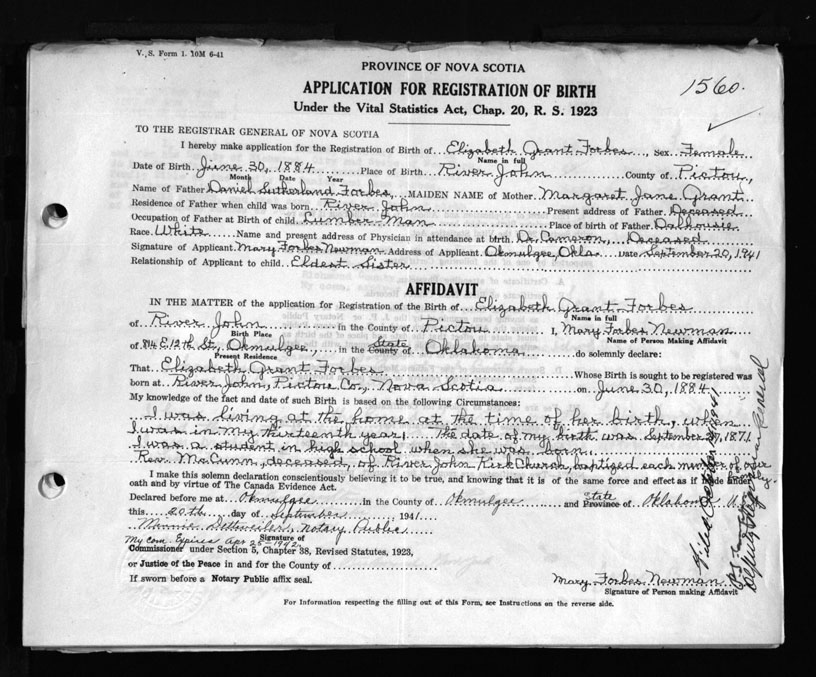 V. S. Form 1. 10M 6-41
PROVINCE OF NOVA SCOTIA
APPLICATION FOR REGISTRATION OF BIRTH
1560.
Under the Vital Statistics Act, Chap. 20, R. S. 1923
TO THE REGISTRAR GENERAL OF NOVA SCOTIA
I hereby make application for the Registration of Birth of Elizabeth Grant Forbes, Sex Female
Name in full
Date of Birth June 30, 1884 Place of Birth River John County of Pictou,
Month Date Year
Name of Father Daniel Sutherland Forbes, MAIDEN NAME of Mother Margaret Jane Grant
Residence of Father when child was born River John Present address of Father Deceased
Occupation of Father at Birth of child Lumber Man Place of birth of Father Dalhousie
Race White Name and present address of Physician in attendance at birth Dr. Cameron, Deceased
Signature of Applicant Mary Forbes Newman Address of Applicant Okmulgee, Okla. Date September 20, 1941
Relationship of Applicant to child Eldest Sister
AFFIDAVIT
IN THE MATTER of the application for Registration of the Birth of Elizabeth Grant Forbes
Name in full
of River John in the County of Pictou I, Mary Forbes Newman
Birth Place Name of Person Making Affidavit
of 814 E 12th St., Okmulgee, in the County of State Oklahoma do solemnly declare:
Present Residence
That Elizabeth Grant Forbes Whose Birth is sought to be registered was
born at River John, Pictou Co., Nova Scotia on June 30, 1884
My knowledge of the fact and date of such Birth is based on the following Circumstances:
I was living at the home at the time of her birth, when
I was in my thirteenth year. The date of my birth was September 1871
I was a student in high school when she was born.
Rev. McCunn, deceased, of River John Kirk Church, baptized each member of our family.
I make this solemn declaration conscientiously believing it to be true, and knowing that it is of the same force and effect as if made under
oath and by virtue of The Canada Evidence Act.
Declared before me at Okmulgee in the County of Okmulgee and Province of State Oklahoma U.
this 20th day of September 1941
Minnie Notary Public
Signature of
My Com. Expires Apr 25-1942
Commissioner under Section 5, Chapter 38, Revised Statutes, 1923,
or Justice of the Peace in and for the County of
If sworn before a Notary Public affix seal.
Mary Forbes Newman
Signature of Person making Affidavit
For Information respecting the filling out of this Form, see Instructions on the reverse side.
Filed 1941
Deputy Registrar General